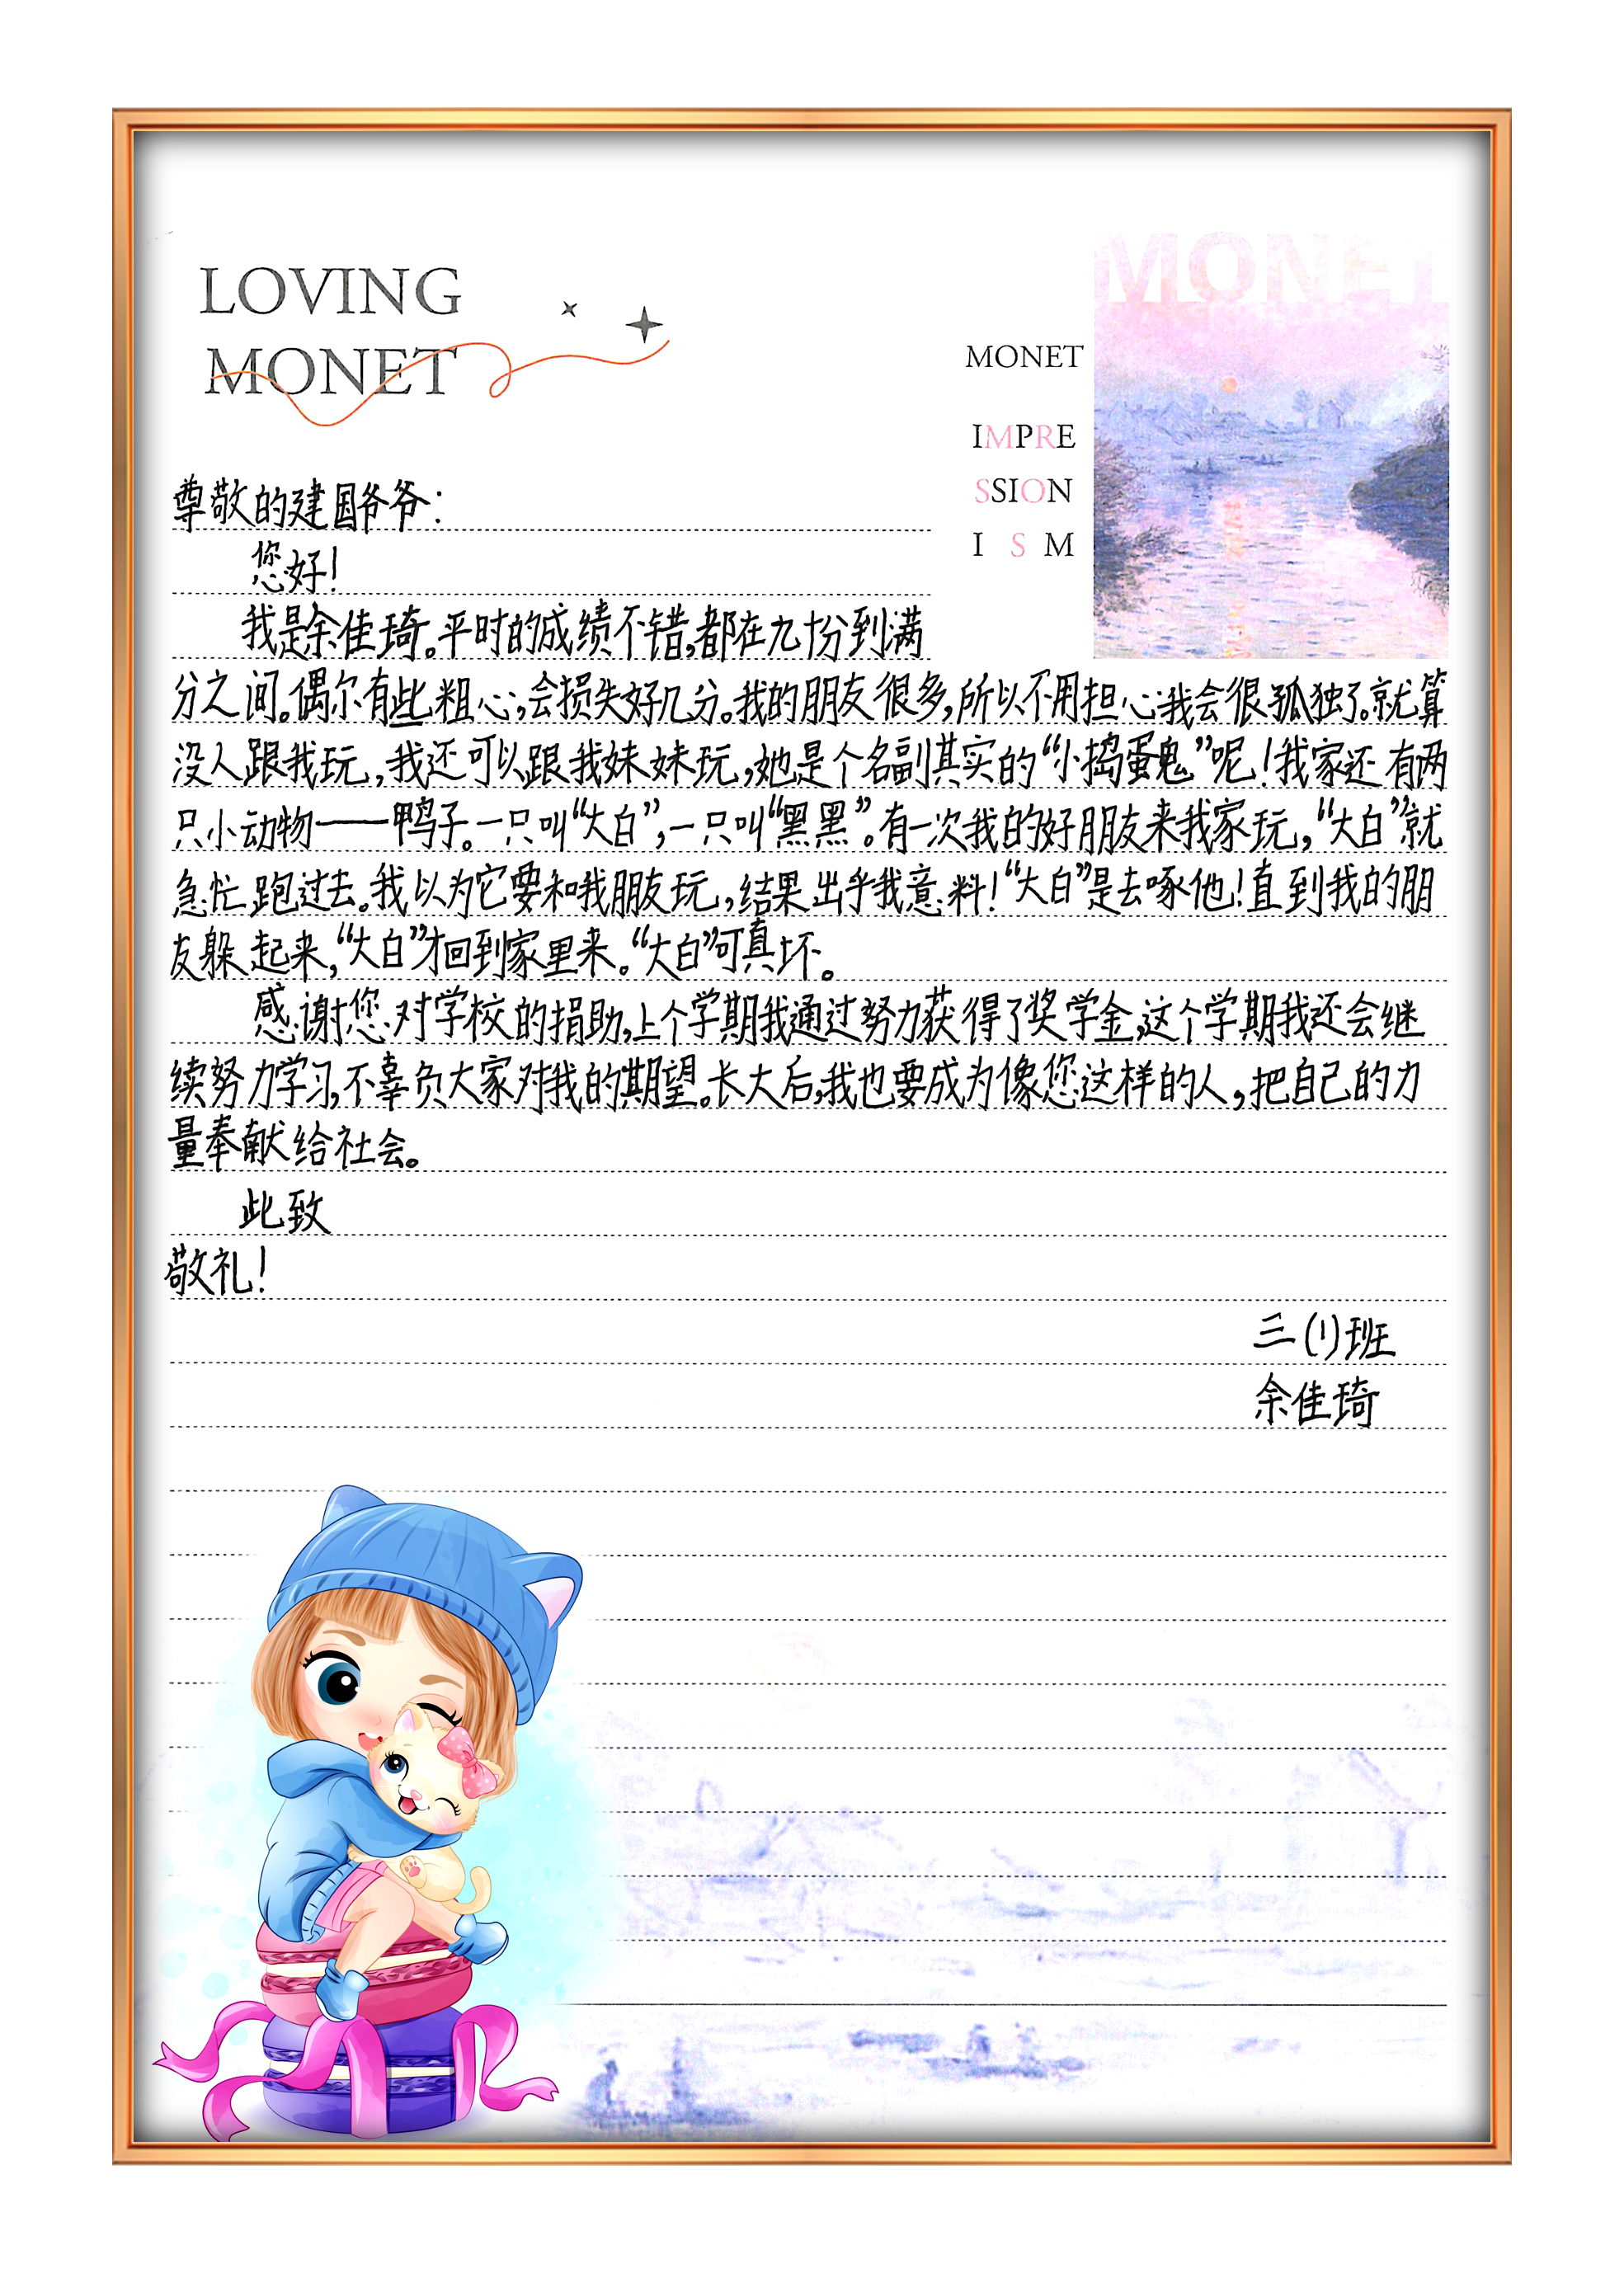 LOVING
MONET
MONET
MONET
IMPRE
SSION
I S M
尊敬的建国爷爷：
您好！
我是余佳琦。平时的成绩不错，都在九十分到满
分之间。偶尔有些粗心，会损失好几分。我的朋友很多，所以不用担心我会很孤独了。就算
没人跟我玩，我还可以跟我妹妹玩，她是个名副其实的“小捣蛋鬼”呢！我家还有两
只小动物——鸭子。一只叫“大白”，一只叫“黑黑”。有一次我的好朋友来我家玩，“大白”就
急忙跑过去。我以为它要和我朋友玩，结果出乎我意料！“大白”是去啄他！直到我的朋
友躲起来，“大白”才回到家里来。“大白”可真坏。
感谢您对学校的捐助，上个学期我通过努力获得了奖学金，这个学期我还会继
续努力学习，不辜负大家对我的期望。长大后，我也要成为像您这样的人，把自己的力
量奉献给社会。
此致
敬礼！
三(1)班
余佳琦